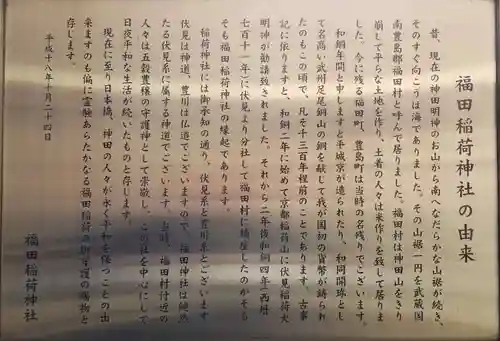 福田稲荷神社の由来
昔、現在の神田明神のお山から南へなだらかな山裾が続き、
そのすぐ向こうは海でありました。その山裾一円を武蔵国
南豊島郡福田村と呼んで居りました。福田村は神田山をきり
崩して平らな土地を作り、土着の人々は米作りを致して居りま
した。今に残る福田町、豊島町は当時の名残りでございます。
和銅年間と申しますと平城京が造られたり、和同開珎とし
て名高い武州足尾銅山の銅を献じて我が国初の貨幣が鋳られ
たのもこの頃で、凡そ千三百年程前のことであります。古事
記に依りますと、和銅二年に始めて京都稲荷山に伏見稲荷大
明神が勧請致されました。それから二年後和銅四年(西暦
七百十一年)に伏見より分社して福田村に鎮座したのがそも
そも福田稲荷神社の縁起であります。
稲荷神社には御承知の通り、伏見系と豊川系とございます
伏見は神道、豊川は仏道でございますので、福田神社は純然
たる伏見系に属する神道でございます。当時、福田村付近の
人々は五穀豊穣の守護神として崇敬し、この社を中心にして
日夜平和な生活が続いたものと存じます。
現在に至り日本橋、神田の人々が永く平和を保つことの出
来ますのも偏に霊験あらたかなる福田稲荷の御守護の賜物と
存じます。
平成十八年十月二十四日
福田稲荷神社